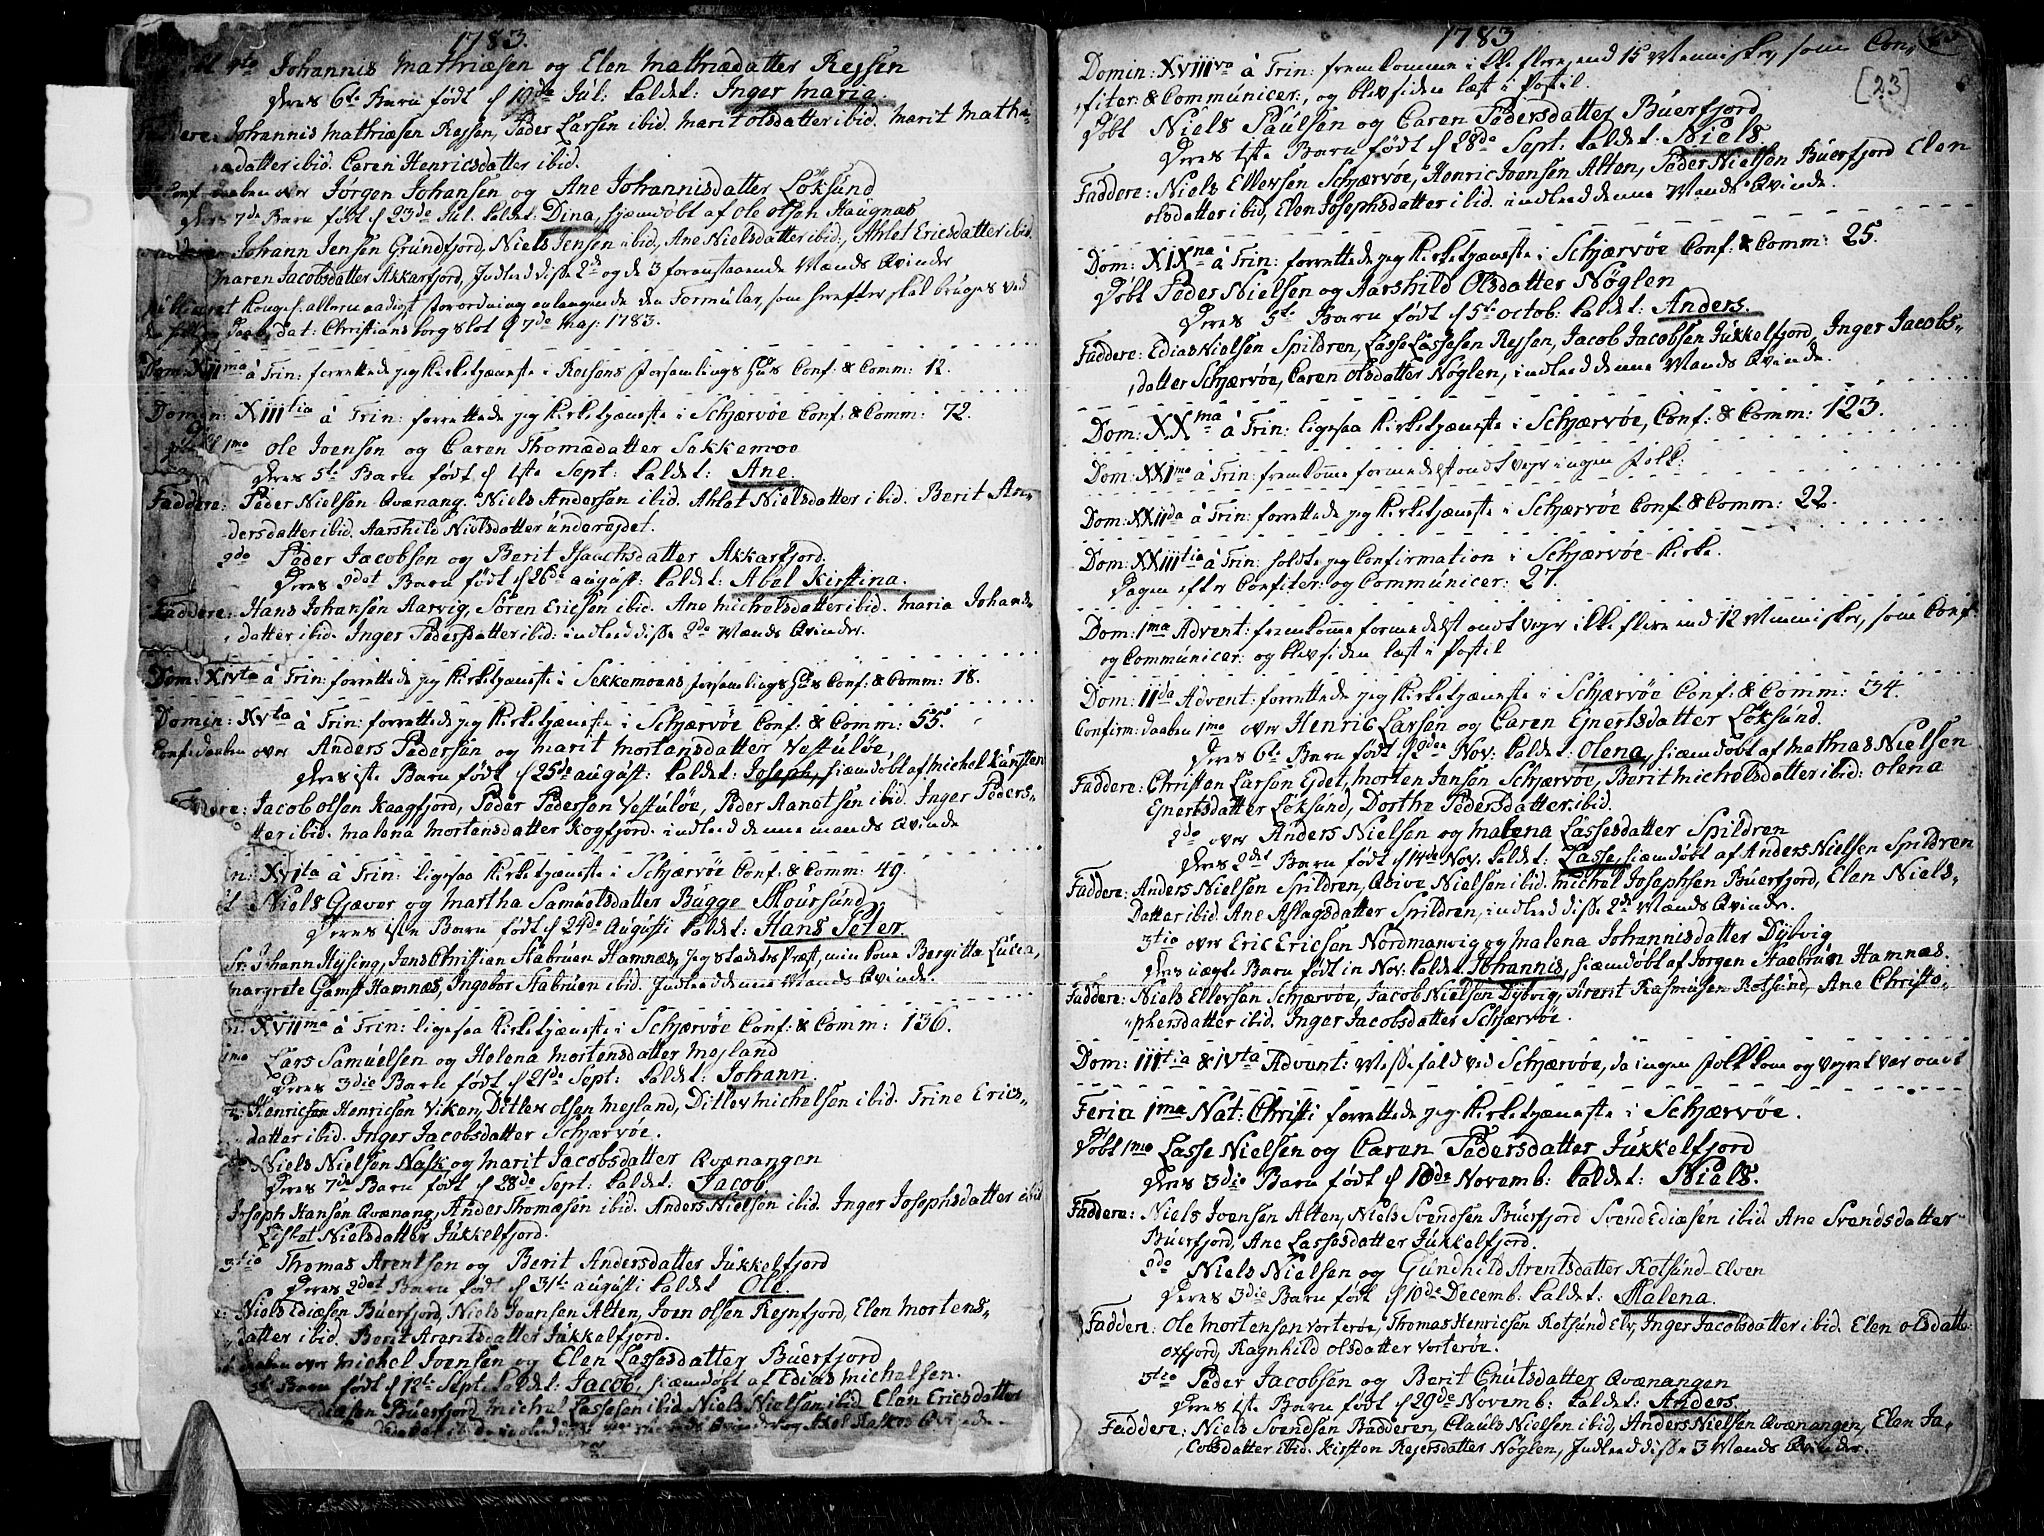 1783.
Johannis Mathiæsen og Elen Mathiædatter Rejsen
Deres 6te Barn født d 19de Jul: kaldet: Inger Maria.
Johannis Mathiæsen Rejsen, Peder Larsen ibid. Marit Olsdatter ibid. Marit Mathi-
ædatter ibid. Caren Henricsdatter ibid.
Conf: daaben over Jørgen Johansen og Ane Johannisdatter Løksund
Deres 7de Barn født d 23de Jul. kaldet: Dina, hjemdøbt af Ole Olsen Haugnæs
Johann Jensen Grundfjord, Niels Jensen ibid, Ane Nielsdatter ibid., Ahlet Ericsdatter ibid.
Maren Jacobsdatter Akkarfjord, Indleed disse 2de og de 3 foranstaaende Mænds Qvinder
publiceret Kongel. allernaadigst forordning anlangende den Formular, som herefter skal bruges ved
Daab, dat: Christiansborg slot d 7de Maj: 1783.
Dom: XIIma à Trin: forrettede jeg Kirketjæneste i Reisens forsamlings Huus Conf: & Comm: 12.
Domin: XIIItia à Trin: forrettede jeg Kirketjæneste i Schjærvøe Conf: & Comm: 72.
1mo Ole Joensen og Caren Thomædatter Sekkemoe
Deres 5te Barn født d 1ste Sept: kaldet: Ane.
Faddere: Peder Nielsen Qvænang. Niels Andersen ibid. Ahlet Nielsdatter ibid. Berit An-
dersdatter ibid. Aarshild Nielsdatter underejdet.
2do Peder Jacobsen og Berit Isaachsdatter Akkarfjord.
Deres 2det Barn født d 26de august: kaldet: Abel Kirstina.
Faddere: Hans Johansen Aarvig, Søren Ericsen ibid. Ane Michelsdatter ibid. Maria Johans-
datter ibid. Inger Pedersdatter ibid: indleed disse 2de Mænds Qvinder.
Dom: XIVta à Trin: forrettede jeg Kirketjæneste i Sekkemoens forsamlings Huus Conf: & Comm: 18.
Domin: XVta à Trin: forrettede jeg Kirketjæneste i Schjærvøe Conf: & Comm: 55.
Conf: daaben over Anders Pedersen og Marit Mortensdatter Vestuløe,
Deres 1ste Barn født d 25de august: kaldet: Joseph, hiemdøbt af Michel Knutsen
Faddere: Jacob Olsen Kaagfjord, Peder Pedersen Vestuløe, Peder Aanetsen ibid. Inger Peders-
datter ibid. Malena Mortensdatter Kogfjord. indleed denne Mands Qvinde
XVIta à Trin: ligesaa Kirketjæneste i Schjærvøe Conf: & Comm: 49.
Niels Gjæver og Martha Samuelsdatter Bugge Moursund
Deres 1ste Barn født d 24de Augusti kaldet: Hans Peter.
Sr. Johann Hysing, Jens Christian Stabruen Hamnæs, Jeg stedets Præst, min kone Bergitta Lucia,
Margrete Gamst Hamnæs, Ingebor Stabruen ibid. Indleed denne Mands Qvinde.
XVIIma à Trin: ligesaa Kirketjæneste i Schjærvøe Conf: & Comm: 136.
1mo Lars Samuelsen og Helena Mortensdatter Mejland
Deres 3die Barn født d 21de Sept: kaldet: Johann.
Henricsen Henricsen Viken, Ditlev Olsen Mejland, Ditlev Michelsen ibid. Trine Erics-
datter ibid. Inger Jacobsdatter Schjærvøe.
Niels Nielsen Nask og Marit Jacobsdatter Qvænangen
Deres 7de Barn født d 28de Sept: kaldet: Jacob
Joseph Hansen Qvænang, Anders Thomæsen ibid. Anders Nielsen ibid. Inger Josephsdatter ibid
Lisbet Nielsdatter Jukkelfjord.
3tio Thomas Arentsen og Berit Andersdatter Jukkelfjord
Deres 2det Barn født d 31te augusti kaldet Ole.
Niels Ediæsen Buerfjord, Niels Joensen Alten, Iven Olsen Rejnfjord, Elen Mortens-
datter ibid. Berit Arentsdatter Jukkelfjord.
daaben over Michel Joensen og Elen Lassesdatter Buerfjord
Barn født d 12te Sept. kaldet: Jacob, hiemdøbt af Edias Michelsen.
Ediæsen Buerfjord, Michel Lassesen ibid. Niels Nielsen ibid. Elen Ericsdatter
1783
[23]
Domin: XVIIIva à Trin: fremkomme ikke flere, end 15 Mennisker, som Con-
fiter: & Communicer:, og blev siden læst i Postil.
Døbt Niels Paulsen og Caren Pedersdatter Buerfjord
Deres 1ste Barn født d 28de Sept: kaldet: Niels.
Faddere: Niels Ellevsen Schjærvøe, Henric Ivensen Alten, Peder Nielsen Buerfjord Elen
Olsdatter ibid, Elen Josephsdatter ibid. indleed denne Mands Qvinde.
Dom: XIXna à Trin: forrettede jeg Kirketjæneste i Schjærvøe Conf: & Comm: 25.
Døbt Peder Nielsen og Aarshild Olsdatter Nøglen
Deres 5te Barn født d 5te octob: kaldet: Anders.
Faddere: Edias Nielsen Spildren, Lasse Lassesen Rejsen, Jacob Jacobsen Jukkelfjord, Inger Jacobs-
datter Schjærvøe, Caren Olsdatter Nøglen, indleed denne Mands Qvinde.
Dom: XXma à Trin: ligesaa Kirketjæneste i Schjærvøe, Conf: & Comm: 123.
Dom: XXIma à Trin: fremkomme formedelst ondt Vejr ingen folk.
Dom: XXIIda à Trin: forrettede jeg Kirketjæneste i Schjærvøe Conf: & Comm: 22.
Dom: XXIIItia à Trin: holdte jeg Confirmation i Schjærvøe Kirke.
Dagen efter Confiter: og Communicer: 27.
Dom: 1ma Advent: fremkomme formedelst ondt Vejr ikke flere end 12 Mennisker, som Conf:
og Communicer: og blev siden læst i Postil
Dom: IIda Advent: forrettede jeg Kirketjæneste i Schjærvøe Conf: & Comm: 34.
Confirm: daaben 1mo over Henric Larsen og Caren Ejnertsdatter Løksund.
Deres 6te Barn født d 2den Nov: kaldet: Olena, hiemdøbt af Mathias Nielsen
Faddere: Christen Larsen Ejdet, Morten Jensen Schjærvøe, Berit Michelsdatter ibid: Olena
Ejnertsdatter Løksund, Dorthe Pedersdatter ibid.
2do over Anders Nielsen og Malena Lassesdatter Spildren
Deres 2det Barn født d 14de Nov. kaldet: Lasse, hiemdøbt af Anders Nielsen Spildren
Faddere: Anders Nielsen Spildren, Qvive Nielsen ibid. Michel Josephsen Buerfjord, Elen Niels-
Datter ibid. Ane Aslagsdatter Spildren, indleed disse 2de Mænds Qvinder.
3tio over Eric Ericsen Nordmanvig og Malena Johannisdatter Dybvig
Deres uægte Barn født in Nov: kaldet Johannis, hiemdøbt af Jørgen Staebruen Hamnæs.
Faddere: Niels Ellevsen Schjærvøe, Jacob Nielsen Dybvig, Arent Rasmusen Rotsund, Ane Christo-
phersdatter ibid. Inger Jacobsdatter Schjærvøe.
Dom: IIItia & IVta Advent: Messefald ved Schjærvøe, da ingen folk kom og Vejret var ondt
Feria 1ma Nat: Christi forrettede jeg Kirketjæneste i Schjærvøe.
Døbt 1mo Lasse Nielsen og Caren Pedersdatter Jukkelfjord
Deres 3die Barn født d 10de Novemb: kaldet: Niels.
Faddere: Niels Ivensen Alten, Niels Svendsen Buerfjord Svend Ediæsen ibid Ane Svendsdatter
Buerfjord, Ane Lassesdatter Jukkelfjord.
2do Niels Nielsen og Gundhild Arentsdatter Rotsund-Elven
Deres 3die Barn født d 10de Decemb: kaldet: Malena.
Faddere: Ole Mortensen Vorterøe, Thomas Henricsen Rotsund Elv, Inger Jacobsdatter ibid. Elen Olsdatt:
Oxfjord, Ragnhild Olsdatter Vorterøe.
3tio Peder Jacobsen og Berit Cnutsdatter Qvænangen
Deres 1ste Barn født d 29de Novemb: kaldet: Anders.
Faddere: Niels Svendsen Badderen, Clauls Nielsen ibid, Anders Nielsen Qvænangen, Elen Ja-
cobsdatter ibid. Kirsten Rejersdatter Nøglen, Indleed disse 3 Mænds Qvinder.